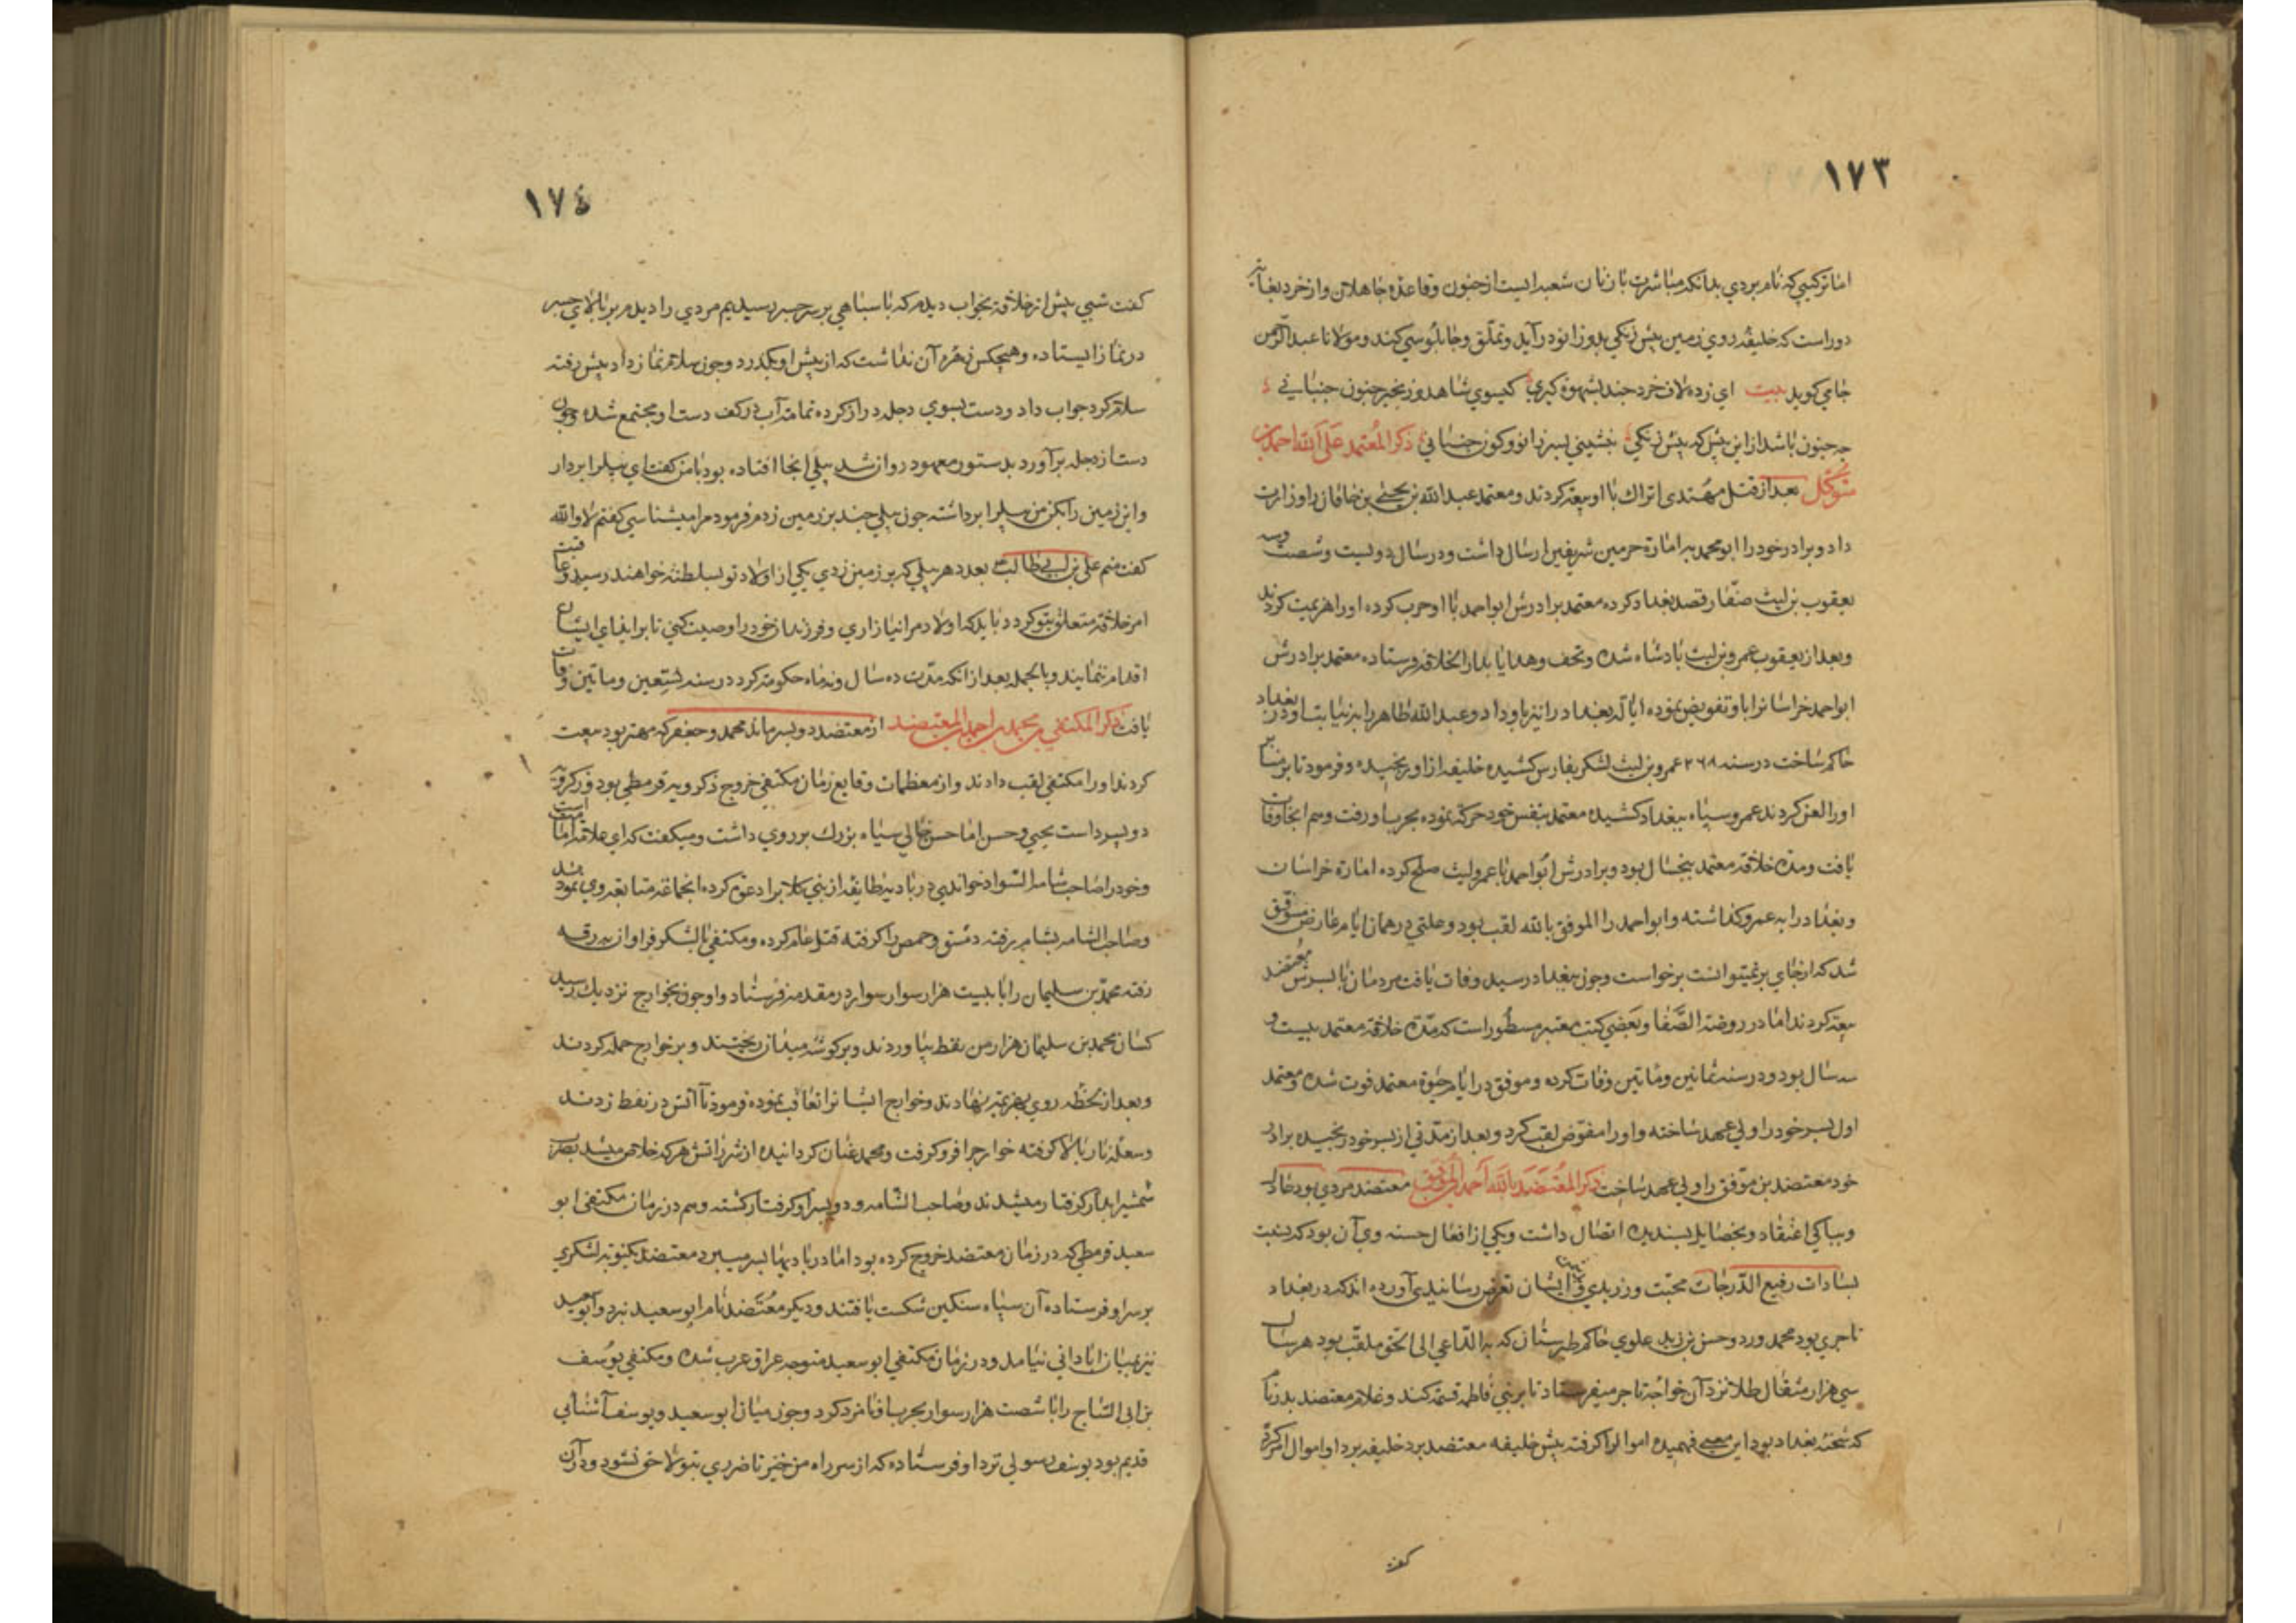 ١٧٣
اما ترکیبی که نام بردی بدانکه مباشرت با زنان شعبه ایست از جنون و قاعده جاهلان و از خرد بغایه
دور است که خلیفه روی زمین پیش زنکی بدو زانو در آید و تملّق و چاپلوسی کند و مولانا عبد الرحمن
جامی کوید بیت ای زده لاف خرد چند بشهوه کیری کیسوی شاهد و زنجیر جنون جنبانی
چه جنون باشد از این بیش که پیش زنکی بنشینی بسر زانو و کون جنبانی ذکر المُعتمد عَلَی الله احمد بن
متوکّل بعد از قتل مهتدی اتراك با او بیعه کردند و معتمد عبد الله بن یحیی بن خاقان را وزارت
داد و برادر خود را ابو محمد به امارة حرمین شریفین ارسال داشت و در سال دویست و شصت وسه
یعقوب بن لیث صفّار قصد بغداد کرده معتمد برادرش ابو احمد با او حرب کرده او را هزیمت کردند
و بعد از یعقوب عمرو بن لیث پادشاه شده و تحف و هدایا بدار الخلافه فرستاده معتمد برادرش
ابو احمد خراسانرا باو تفویض نموده ایالة بغداد را نیز باو داد و عبد الله طاهر را به نیابت او در بغداد
حاکم ساخت در سنه ۲۶۸ عمرو بن لیث لشکر بفارس کشیده خلیفه از او رنجیده و فرمود تا بر منابر
او را لعن کردند عمرو سپاه ببغداد کشیده معتمد بنفس خود حرکة نموده بحرب او رفت و هم انجا وفات
یافت و مدة خلافة معتمد پنجسال بود و برادرش ابو احمد با عمرو لیث صلح کرده امارة خراسان
و بغداد را به عمرو کذاشته و ابو احمد را الموفق بالله لقب بود و علتی در همان ایام عارض موفّق
شد که از جای بر نمیتوانست برخواست و چون ببغداد رسید وفات یافت مردمان با پسرش معتضد
بیعه کردند اما در روضة الصَّفا و بعضی کتب معتبر مسطور است که مدّة خلافة معتمد بیست و
سه سال بود و در سنه ثمانین و ماتین وفات کرده و موفق در ایام حیوة معتمد فوت شده و معتمد
اول پسر خود را ولی عهد ساخته و او را مفوّض لقب کرد و بعد از مدتی از پسر خود رنجیده برادر
خود معتضد بن موفّق را ولی عهد ساخت ذکر المُعتَضَد بالله احمد بن الموفق معتضد مردی بود عادل
و بپاکی اعتقاد و بخصایل پسندیده اتصال داشت و یکی از افعال حسنه وی آن بود که نسبت
بسادات رفیع الدّرجات محبّت ورزیدی و ایشان تعرض رسانیدی آورده اند که در بغداد
تاجری بود محمد ورد و حسن بن زید علوی حاکم طبرستان که به الدّاعی الی الحّق ملقّب بود هر سال
سی هزار مثقال طلا نزد آن خواجه تاجر میفرستاد تا بر بنی فاطمه قسمة کند و غلام معتضد بدر نام
که شحنه بغداد بود این معنی فهمیده اموال را کرفته پیش خلیفه معتضد برد خلیفه برد او اموال
کفت
١٧٤
کفت شبی پیش از خلافة بخواب دیدم که با سپاهی بر سر جسر رسیدیم مردی را دیدم بر بالای جسر
در نماز ایستاده و هیچکس زهره آن نداشت که از پیش او بکذرد و چون سلام نماز داد پیش رفته
سلام کردم جواب داد و دست بسوی دجله دراز کرده تمامة آب در کف دست او مجتمع شده و چون
دست از دجله برآورد بدستور معهود روان شد بیلی انجا افتاده بود با من کفت ای بیل را بردار
و این زمین را بکن من بیل را برداشته چون بیلی چند بر زمین زدم فرمود مرا میشناسی کفتم لا والله
کفت منم علی بن ابی طالب بعدد هر بیلی که بر زمین زدی یکی از اولاد تو بسلطنه خواهند رسید و عاقبت
امر خلافة متعلق بتو کردد باید که اولاد مرا نیازاری و فرزندان خود را وصیت کنی تا بر ایذای ایشان
اقدام ننمایند و بالجمله بعد از انکه مدّت ده سال و نه ماه حکومة کرد در سنه تسعین و ماتین وفات
یافت ذکر المکتفی بن احمد المعتضد از معتضد دو پسر ماند محمد و جعفر که مهتر بود بیعت
کردند او را مکتفی لقب دادند و از معظمات وقایع زمان مکتفی خروج ذکرویه قرمطی بود و ذکرویه
دو پسر داست یحیی و حسن اما حسن خالی سیاه بزرك بر روی داشت و میکفت که ای علاقة امامت است
و خود را صاحب شامة السّواد خواندی در بادیه طایفه از بنی کلاب را دعوة کرده انجماعة متابعه وی نمودند
و صاحب الشامه بشام رفته دمشق و حمص را کرفته قتل عام کرده و مکتفی با لشکر فراوان به رقه
رفته محمّد بن سلیمان را با بیست هزار سوار سوار در مقدمه فرستاد و او چون بخوارج نزدیك رسید
کسان محمد بن سلیمان هزار من نفط بیاوردند و بر کوشه میدان ریختند و بر خوارج حمله کردند
و بعد از لحظه روی بهزیمة نهادند و خوارج ایشانرا تعاقب نموده فرمود تا آتش در نفط زدند
و شعله نار بالا کرفته خوارج را فرو کرفت و محمد عنان کردانیده از شر آتش هر که خلاص میشد بضرب
شمشیر ابدار کرفتار میشدند و صاحب الشامه و دو پسر او کرفتار کشته و هم در زمان مکتفی ابو
سعید قرمطی که در زمان معتضد خروج کرده بود اما در بادیها بسر میبرد معتضد یکنوبه لشکری
بر سر او فرستاده آن سپاه سنکین شکست یافتند و دیکر مُعتَضد نام ابو سعید نبرد و ابو سعید
نیز بمیان ابادانی نیامد و در زمان مکتفی ابو سعید متوجه عراق عرب شده و مکتفی یوُسف
بن ابی السّاج را با شصت هزار سوار بحرب او نامزد کرد و چون میان ابو سعید و یوسف آشنایی
قدیم بود یوسف رسولی نزد او فرستاده که از سر راه من خیز تا ضرری بتو لاحق نشود و در آن